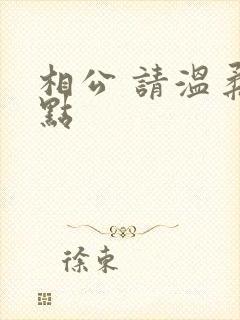 相公 請溫柔
點
徐東